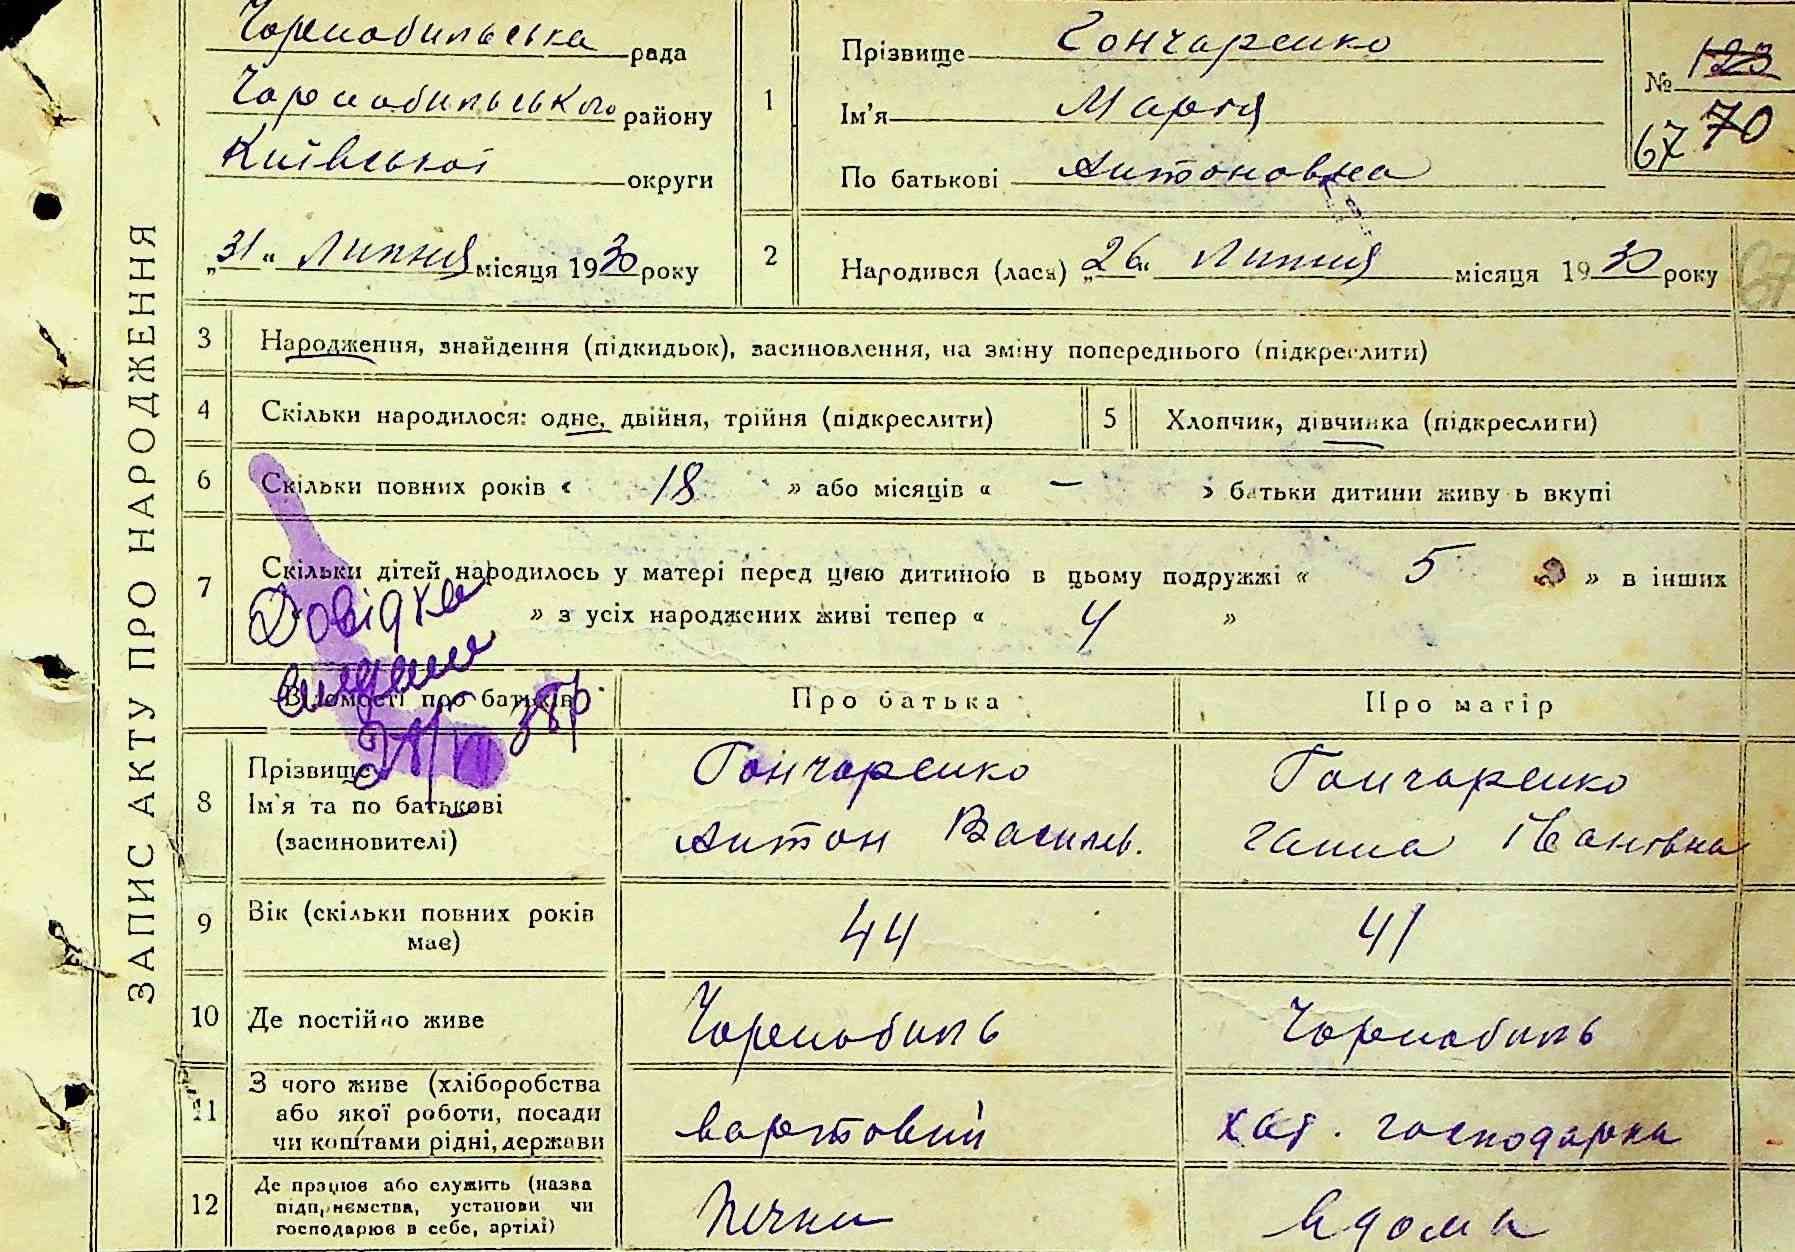 ЗАПИС АКТУ ПРО НАРОДЖЕННЯ
Чорнобильська рада
Чорнобильського району
Київської округи
„31“ Липня місяця 1930 року
1
Прізвище Гончаренко
Ім'я Марія
По батькові Антоновна
№ 123
67 70
2 Народився (лася) „26“ Липня місяця 1930 року
67
3 Народження, знайдення (підкидьок), засиновлення, на зміну попереднього (підкреслити)
4 Скільки народилося: одне, двійня, трійня (підкреслити)
5 Хлопчик, дівчинка (підкреслити)
6 Скільки повних років « 18 » або місяців « — » батьки дитини живуть вкупі
7 Скільки дітей народилось у матері перед цією дитиною в цьому подружжі « 5 » в інших
» з усіх народжених живі тепер « 4 »
Довідка
видана
38р.
Відомості про батьків Про батька Про матір
8 Прізвище Гончаренко Гончаренко
Ім'я та по батькові Антон Василь. Ганна Івановна
(засиновителі)
9 Вік (скільки повних років 44 41
має)
10 Де постійно живе Чорнобиль Чорнобиль
11 З чого живе (хліборобства
або якої роботи, посади вартовий хат. господарка
чи коштами рідні, держави
12 Де працює або служить (назва
підприємства, установи чи вдома
господарює в себе, артілі)